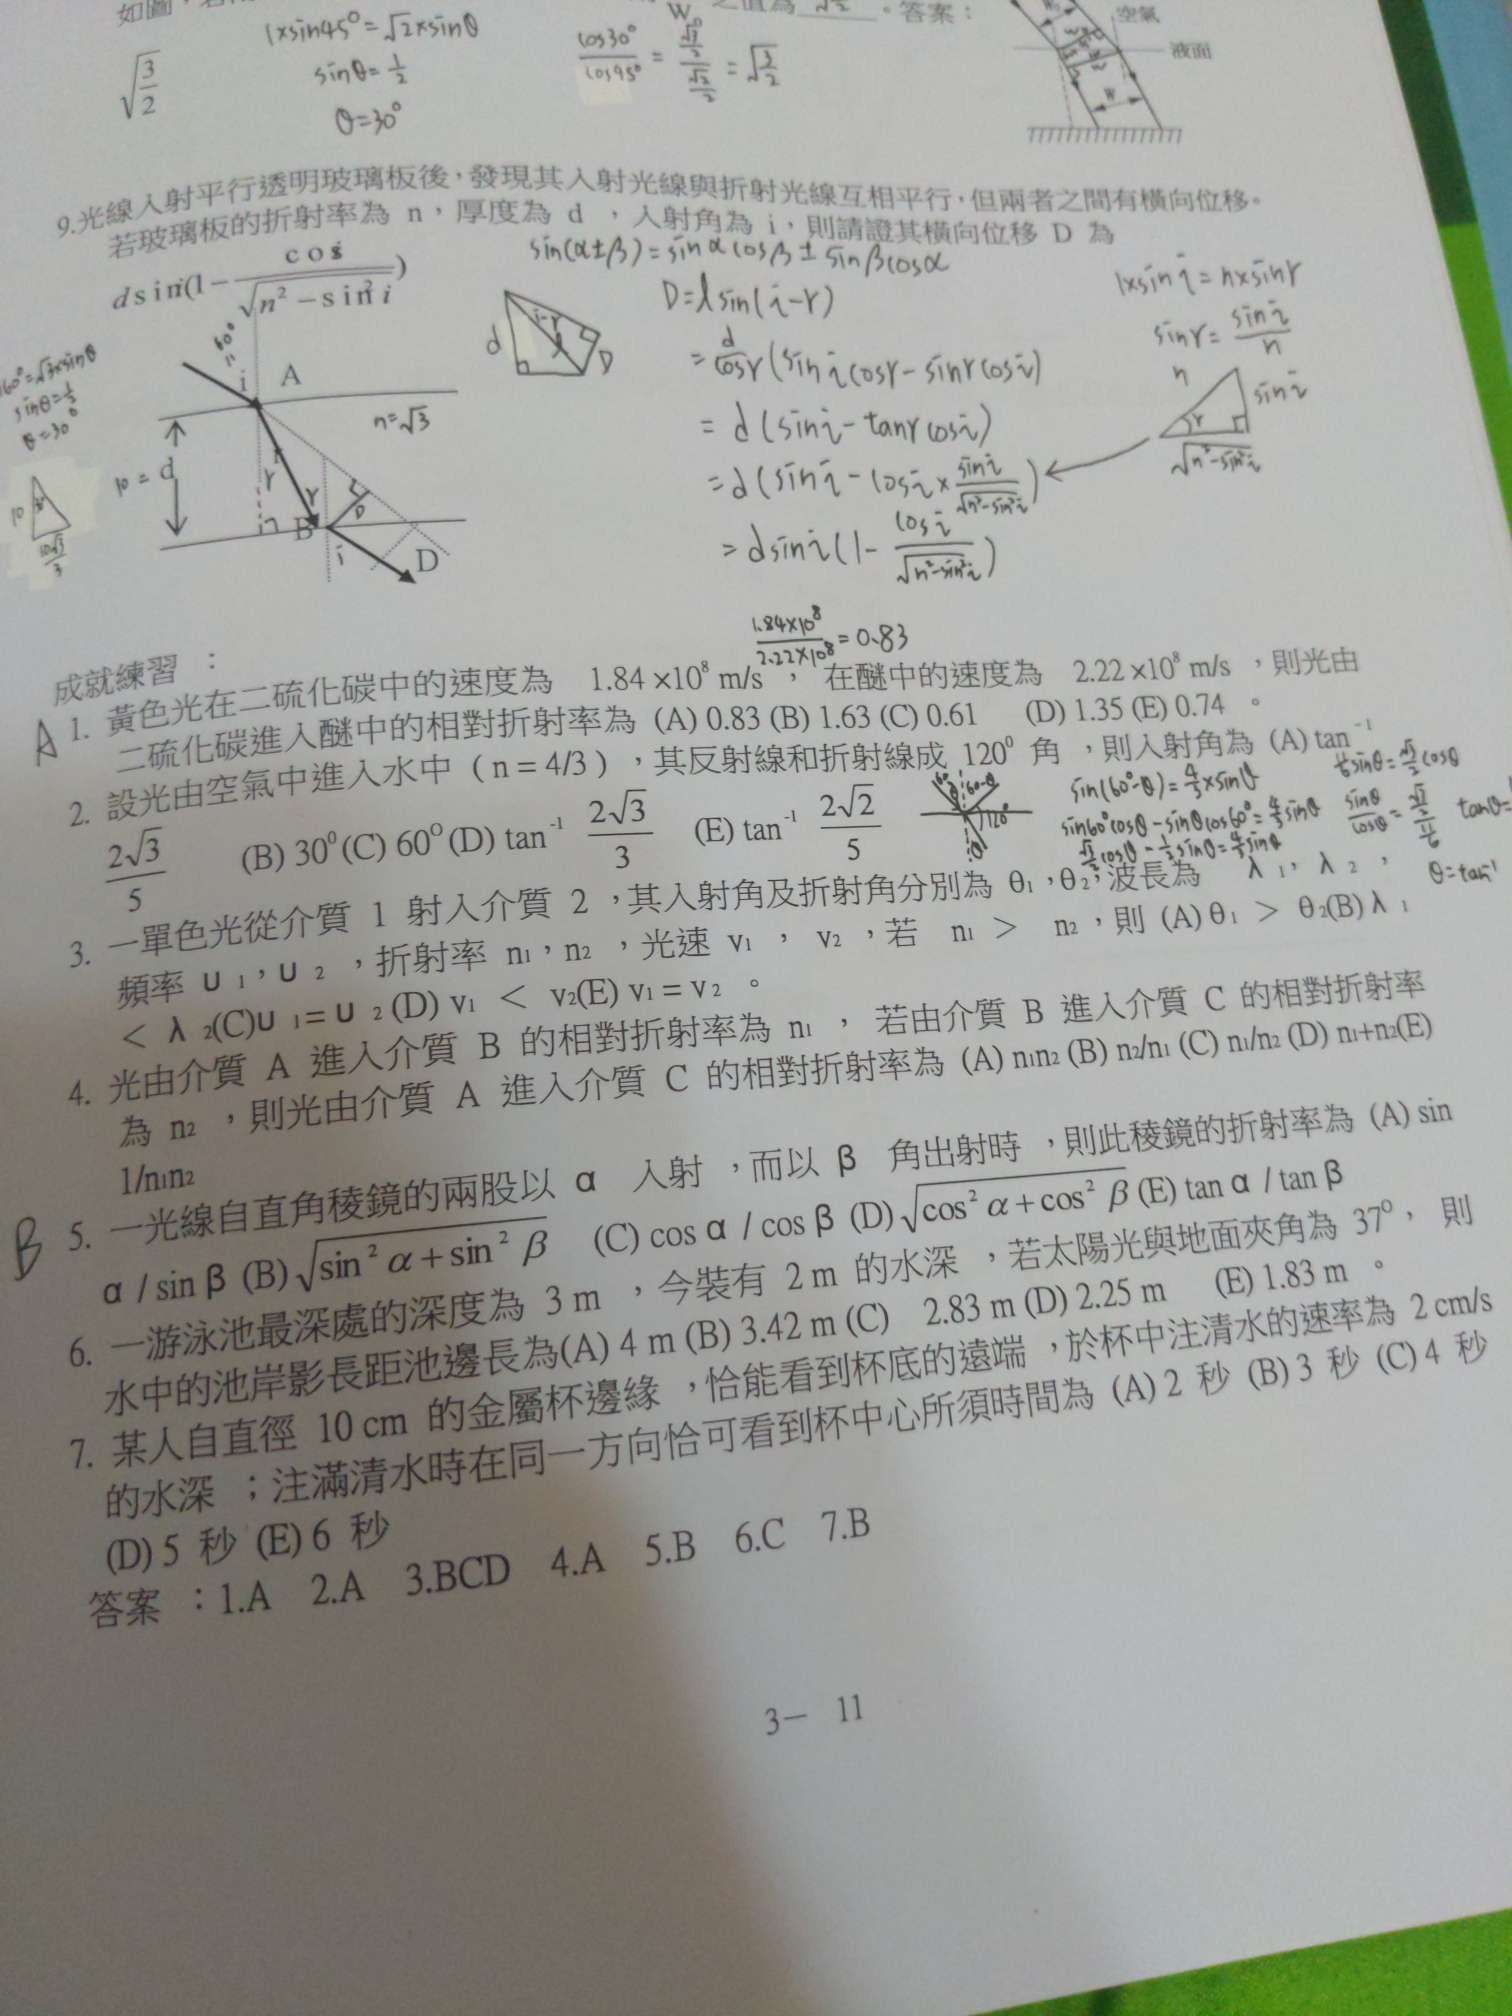 1×sin45°=√2×sinθ
sinθ=1/2
θ=30°
√(3/2)
cos30°/cos45° = (√3/2)/(√2/2) = √(3/2)
空氣
液面
W
9.光線入射平行透明玻璃板後,發現其入射光線與折射光線互相平行,但兩者之間有橫向位移。
若玻璃板的折射率為 n,厚度為 d ,入射角為 i,則請證其橫向位移 D 為
d sin i(1- cos i/√(n²-sin²i))
sin(α±β)=sinαcosβ±sinβcosα
D=ℓsin(i-r)
= d/cosr (sin i cosr - sinr cos i)
= d(sin i - tanr cos i)
= d(sin i - cos i × sin i/√(n²-sin²i))
= d sin i(1- cos i/√(n²-sin²i))
1×sin i = n×sinr
sinr= sin i/n
n
sin i
r
√(n²-sin²i)
60°=√3×sinθ
sinθ=1/2
θ=30°
10
10√3/3
60°
i
A
n=√3
10 = d
r
r
B
D
i
D
d
i-r
ℓ
D
1.84×10⁸/2.22×10⁸=0.83
成就練習 :
A 1. 黃色光在二硫化碳中的速度為 1.84 ×10⁸ m/s , 在醚中的速度為 2.22 ×10⁸ m/s ,則光由
二硫化碳進入醚中的相對折射率為 (A) 0.83 (B) 1.63 (C) 0.61 (D) 1.35 (E) 0.74 。
2. 設光由空氣中進入水中 ( n = 4/3 ) ,其反射線和折射線成 120⁰ 角 ,則入射角為 (A) tan⁻¹
2√3/5 (B) 30⁰ (C) 60⁰ (D) tan⁻¹ 2√3/3 (E) tan⁻¹ 2√2/5
60-θ
120°
θ
sin(60°-θ)=4/3×sinθ
sin60°cosθ-sinθcos60°=4/3sinθ
√3/2cosθ-1/2sinθ=4/3sinθ
11/6sinθ=√3/2cosθ
tanθ=
θ=tan⁻¹
3. 一單色光從介質 1 射入介質 2 ,其入射角及折射角分別為 θ₁,θ₂,波長為 λ₁, λ₂ ,
頻率 υ₁,υ₂ ,折射率 n₁,n₂ ,光速 v₁ , v₂ ,若 n₁ > n₂ ,則 (A) θ₁ > θ₂(B) λ₁
< λ₂(C)υ₁=υ₂ (D) v₁ < v₂(E) v₁ = v₂ 。
4. 光由介質 A 進入介質 B 的相對折射率為 n₁ , 若由介質 B 進入介質 C 的相對折射率
為 n₂ ,則光由介質 A 進入介質 C 的相對折射率為 (A) n₁n₂ (B) n₂/n₁ (C) n₁/n₂ (D) n₁+n₂(E)
1/n₁n₂
B 5. 一光線自直角稜鏡的兩股以 α 入射 ,而以 β 角出射時 ,則此稜鏡的折射率為 (A) sin
α / sin β (B) √(sin² α + sin² β) (C) cos α / cos β (D) √(cos² α + cos² β) (E) tan α / tan β
6. 一游泳池最深處的深度為 3 m ,今裝有 2 m 的水深 ,若太陽光與地面夾角為 37⁰, 則
水中的池岸影長距池邊長為(A) 4 m (B) 3.42 m (C) 2.83 m (D) 2.25 m (E) 1.83 m 。
7. 某人自直徑 10 cm 的金屬杯邊緣 ,恰能看到杯底的遠端 ,於杯中注清水的速率為 2 cm/s
的水深 ;注滿清水時在同一方向恰可看到杯中心所須時間為 (A) 2 秒 (B) 3 秒 (C) 4 秒
(D) 5 秒 (E) 6 秒
答案 :1.A 2.A 3.BCD 4.A 5.B 6.C 7.B
3— 11